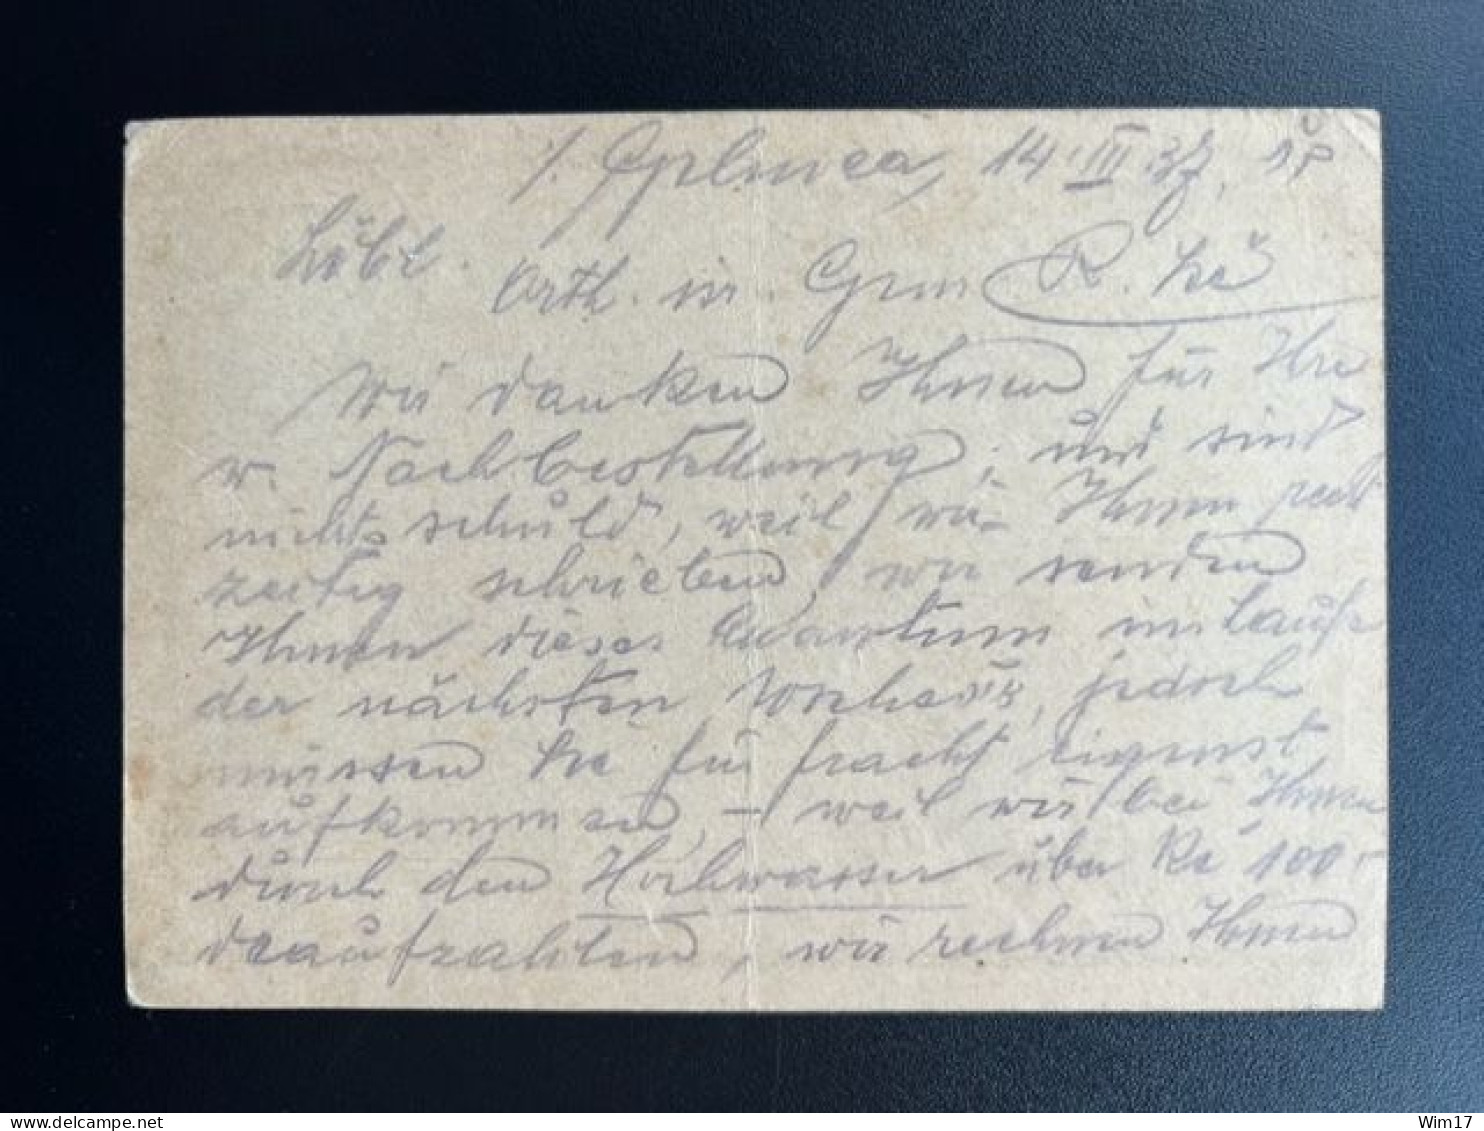 14 III 37,
Löbl.
Orth. isr.
Wir danken Ihnen für Ihre
w. Nachbestellung, und sind
nichts schuld, weil wir Ihnen recht
zeitig schrieben, wir senden
Ihnen dieses Quantum im Laufe
der nächsten Woche, jedoch
müssen Sie für Fracht eigenst
aufkommen, – weil wir bei Ihnen
durch den Hochwasser über Kč 100
draufzahlten, wir rechnen Ihnen
Wim17